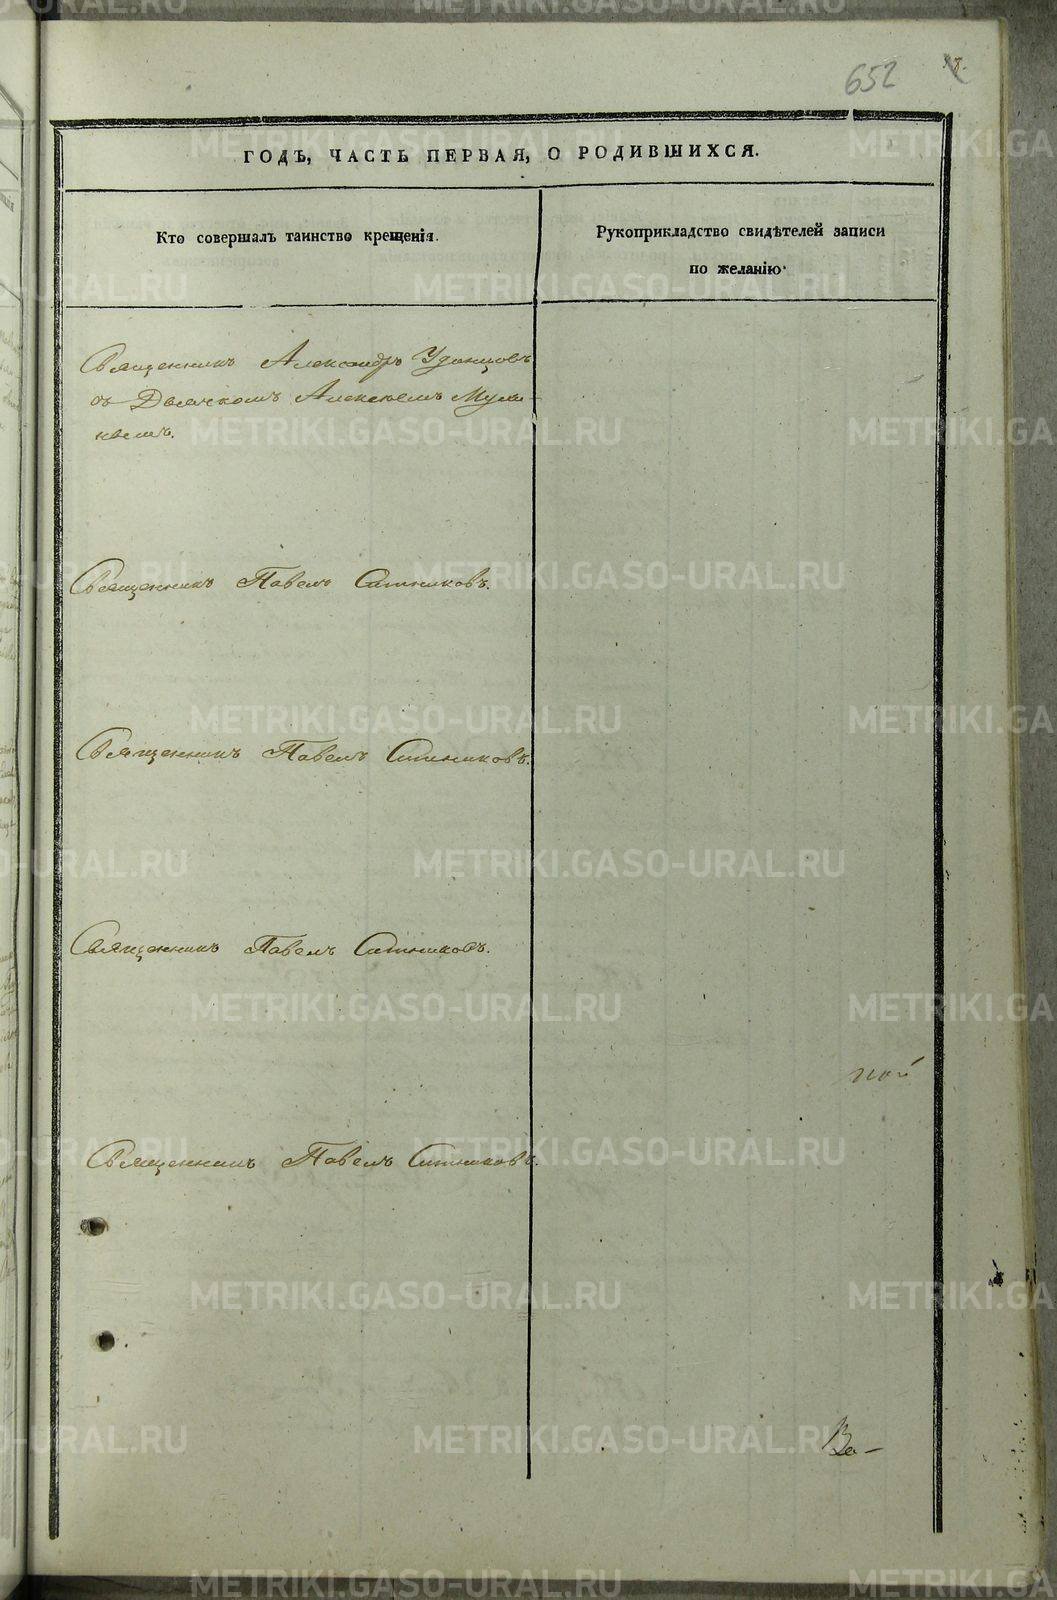 652
ГОДЪ, ЧАСТЬ ПЕРВАЯ, О РОДИВШИХСЯ.
Кто совершалъ таинство крещенія.
Рукоприкладство свидѣтелей записи
по желанію.
Священникъ Александръ Удинцовъ
съ Дьячкомъ Алексѣемъ
Священникъ Павелъ Ситниковъ.
Священникъ Павелъ Ситниковъ.
Священникъ Павелъ Ситниковъ.
Священникъ Павелъ Ситниковъ.
Ва-
METRIKI.GASO-URAL.RU